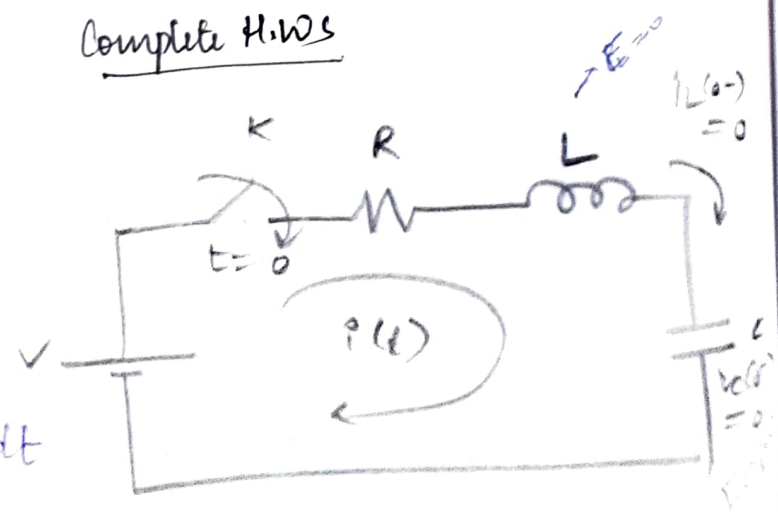 Complete H.WS
K
R
L
→ E = 0
i_L(0-)
= 0
t = 0
i(t)
V
C
= 0
dt